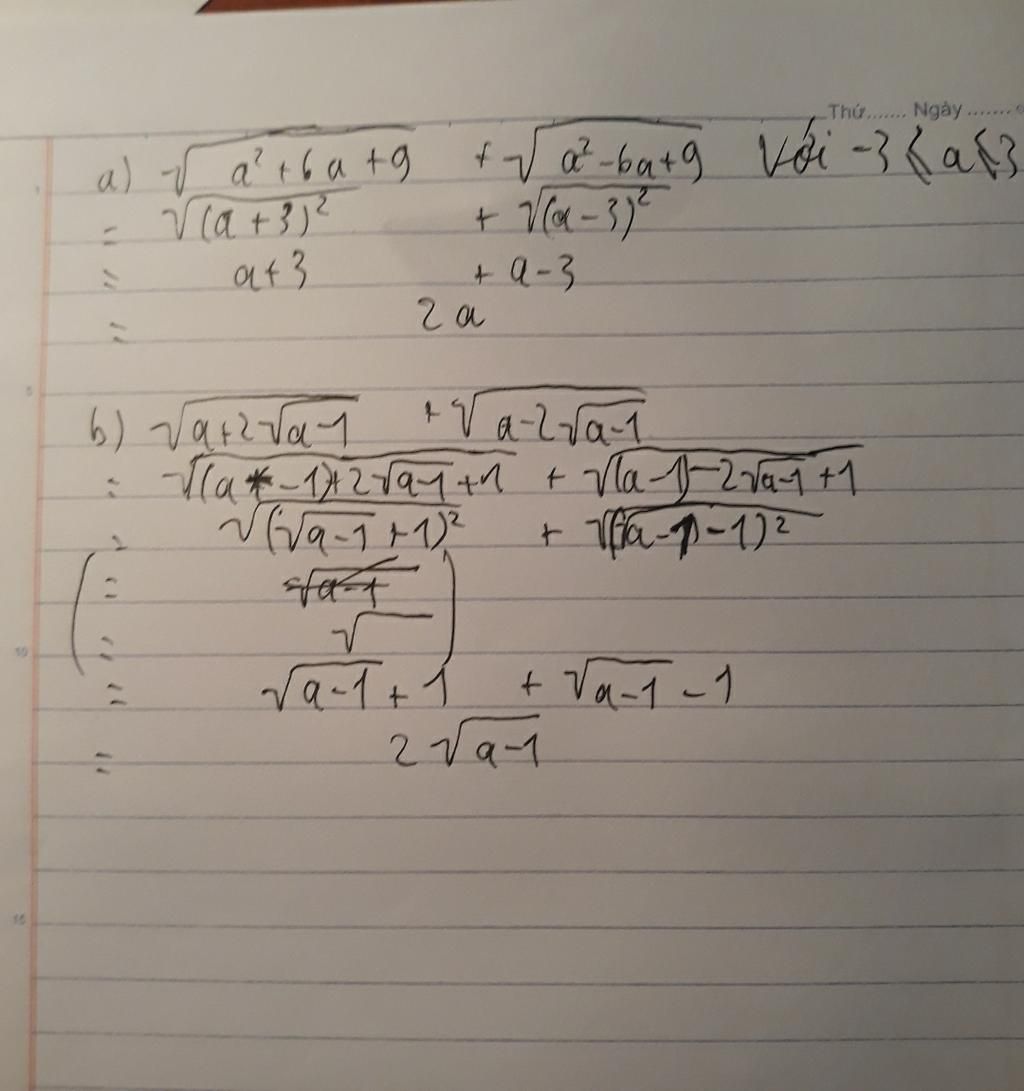 Thứ....... Ngày.......
a) √(a²+6a+9) + √(a²-6a+9) Với -3 ≤ a ≤ 3
= √((a+3)²) + √((a-3)²)
= a+3 + a-3
= 2a
5
b) √(a+2√(a-1)) + √(a-2√(a-1))
= √((a-1)+2√(a-1)+1) + √((a-1)-2√(a-1)+1)
= √((√(a-1)+1)²) + √((√(a-1)-1)²)
( = √(a-1)
= √ )
10
= √(a-1)+1 + √(a-1)-1
= 2√(a-1)
15